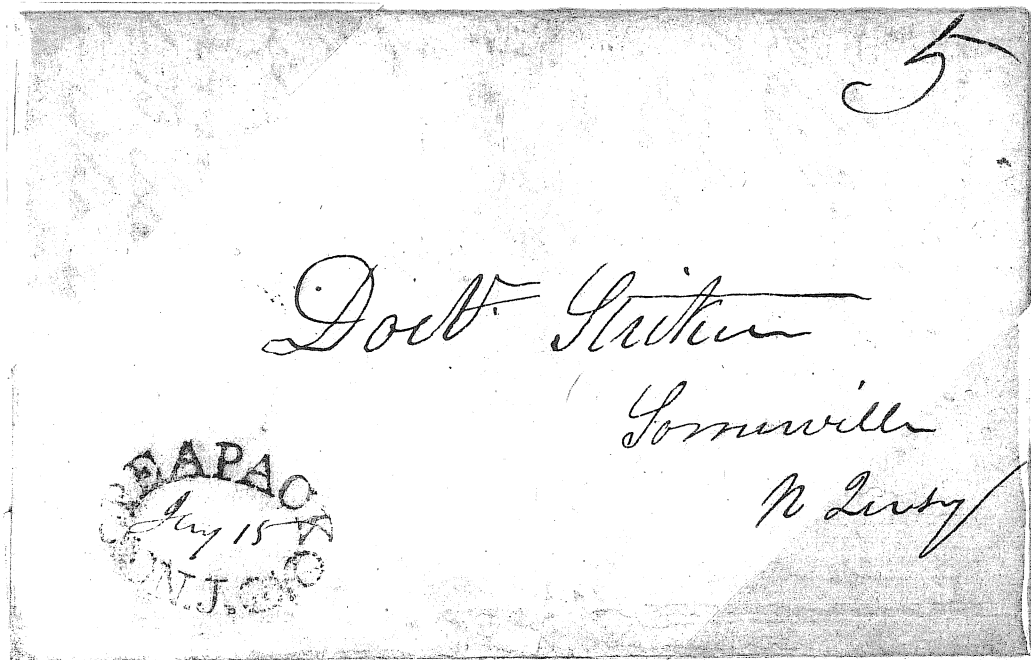 5
Doctr. Striker
Somerville
N Jersey
PEAPACK
Jany 15
N.J.